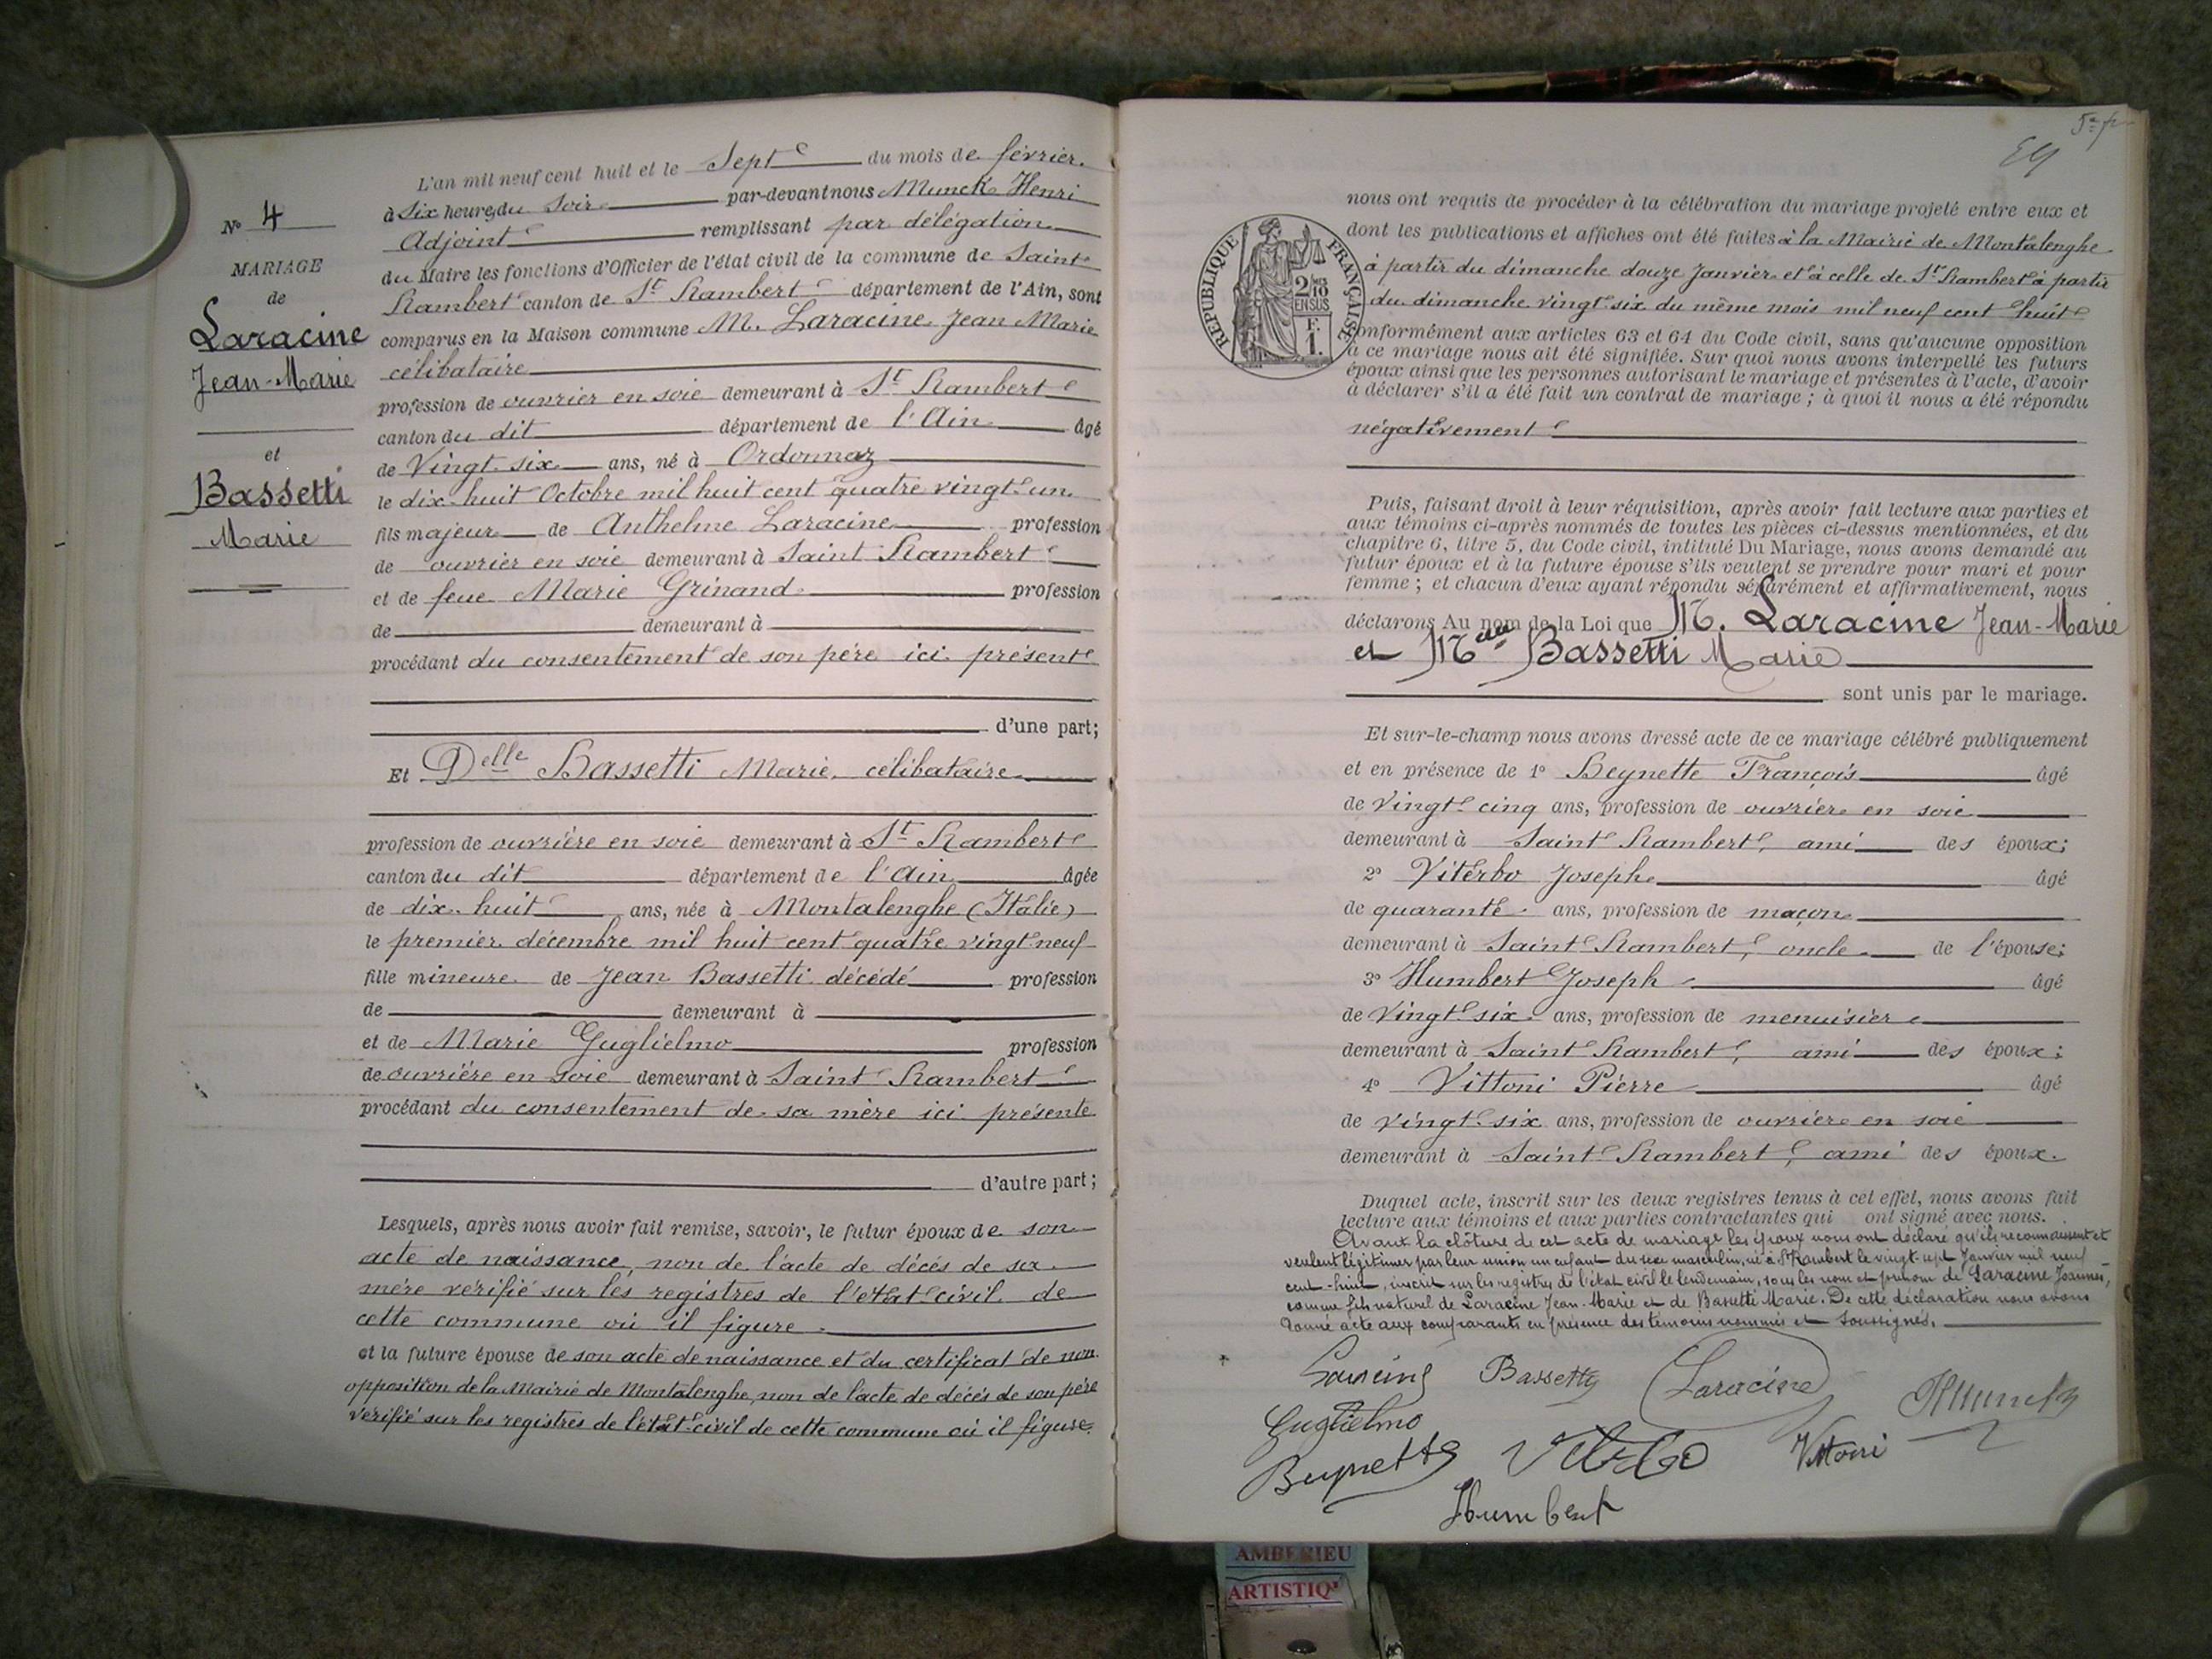 N° 4
MARIAGE
de
Laracine
Jean-Marie
et
Bassetti
Marie
L'an mil neuf cent huit et le Sept du mois de février
à Six heures du Soir par-devant nous Munck Henri
Adjoint remplissant par délégation
du Maire les fonctions d'Officier de l'état civil de la commune de Saint
Rambert canton de St Rambert département de l'Ain, sont
comparus en la Maison commune M. Laracine Jean Marie
célibataire
profession de ouvrier en soie demeurant à St Rambert
canton du dit département de l'Ain âgé
de Vingt six ans, né à Ordonnaz
le dix-huit Octobre mil huit cent quatre vingt un
fils majeur de Anthelme Laracine profession
de ouvrier en soie demeurant à Saint Rambert
et de feue Marie Grinand profession
de demeurant à
procédant du consentement de son père ici présent
d'une part;
Et Delle Bassetti Marie, célibataire
profession de ouvrière en soie demeurant à St Rambert
canton du dit département de l'Ain âgée
de dix-huit ans, née à Montalenghe (Italie)
le premier décembre mil huit cent quatre vingt neuf
fille mineure de Jean Bassetti décédé profession
de demeurant à
et de Marie Guglielmo profession
de ouvrière en soie demeurant à Saint Rambert
procédant du consentement de sa mère ici présente
d'autre part;
Lesquels, après nous avoir fait remise, savoir, le futur époux de son
acte de naissance, non de l'acte de décès de sa
mère vérifié sur les registres de l'état civil de
cette commune où il figure.
et la future épouse de son acte de naissance et du certificat de non
opposition de la Mairie de Montalenghe, non de l'acte de décès de son père
vérifié sur les registres de l'état-civil de cette commune où il figure.
nous ont requis de procéder à la célébration du mariage projeté entre eux et
dont les publications et affiches ont été faites à la Mairie de Montalenghe
à partir du dimanche douze Janvier et à celle de St Rambert à partir
du dimanche vingt six du même mois mil neuf cent huit
RÉPUBLIQUE FRANÇAISE
2/10
EN SUS
F.
1.
conformément aux articles 63 et 64 du Code civil, sans qu'aucune opposition
à ce mariage nous ait été signifiée. Sur quoi nous avons interpellé les futurs
époux ainsi que les personnes autorisant le mariage et présentes à l'acte, d'avoir
à déclarer s'il a été fait un contrat de mariage ; à quoi il nous a été répondu
négativement
Puis, faisant droit à leur réquisition, après avoir fait lecture aux parties et
aux témoins ci-après nommés de toutes les pièces ci-dessus mentionnées, et du
chapitre 6, titre 5, du Code civil, intitulé Du Mariage, nous avons demandé au
futur époux et à la future épouse s'ils veulent se prendre pour mari et pour
femme ; et chacun d'eux ayant répondu séparément et affirmativement, nous
déclarons Au nom de la Loi que M. Laracine Jean-Marie
et Melle Bassetti Marie
sont unis par le mariage.
Et sur-le-champ nous avons dressé acte de ce mariage célébré publiquement
et en présence de 1° Beynette François âgé
de vingt cinq ans, profession de ouvrier en soie
demeurant à Saint Rambert, ami des époux;
2° Viterbo Joseph âgé
de quarante ans, profession de maçon
demeurant à Saint Rambert, oncle de l'épouse;
3° Humbert Joseph âgé
de vingt six ans, profession de menuisier
demeurant à Saint Rambert, ami des époux;
4° Vittoni Pierre âgé
de vingt six ans, profession de ouvrier en soie
demeurant à Saint Rambert, ami des époux.
Duquel acte, inscrit sur les deux registres tenus à cet effet, nous avons fait
lecture aux témoins et aux parties contractantes qui ont signé avec nous.
Avant la clôture de cet acte de mariage les époux nous ont déclaré qu'ils reconnaissent et
veulent légitimer par leur union un enfant du sexe masculin, né à St Rambert le vingt-sept Janvier mil neuf
cent-huit, inscrit sur les registres de l'état civil le lendemain, sous les nom et prénom de Laracine Joannès,
comme fils naturel de Laracine Jean-Marie et de Bassetti Marie. De cette déclaration nous avons
donné acte aux comparants en présence des témoins nommés et soussignés.
Laracine Bassetti Laracine HMunck
Guglielmo
Beynette Viterbo Vittoni
Humbert
AMBERIEU
ARTISTIQ